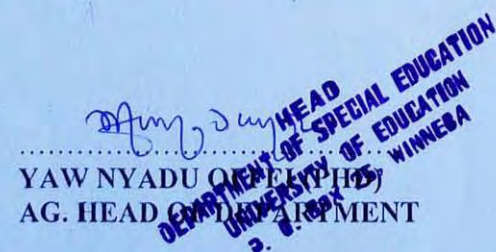 HEAD
DEPARTMENT OF SPECIAL EDUCATION
UNIVERSITY OF EDUCATION
P. O. BOX 25, WINNEBA
YAW NYADU OFFEI (PHD)
AG. HEAD OF DEPARTMENT